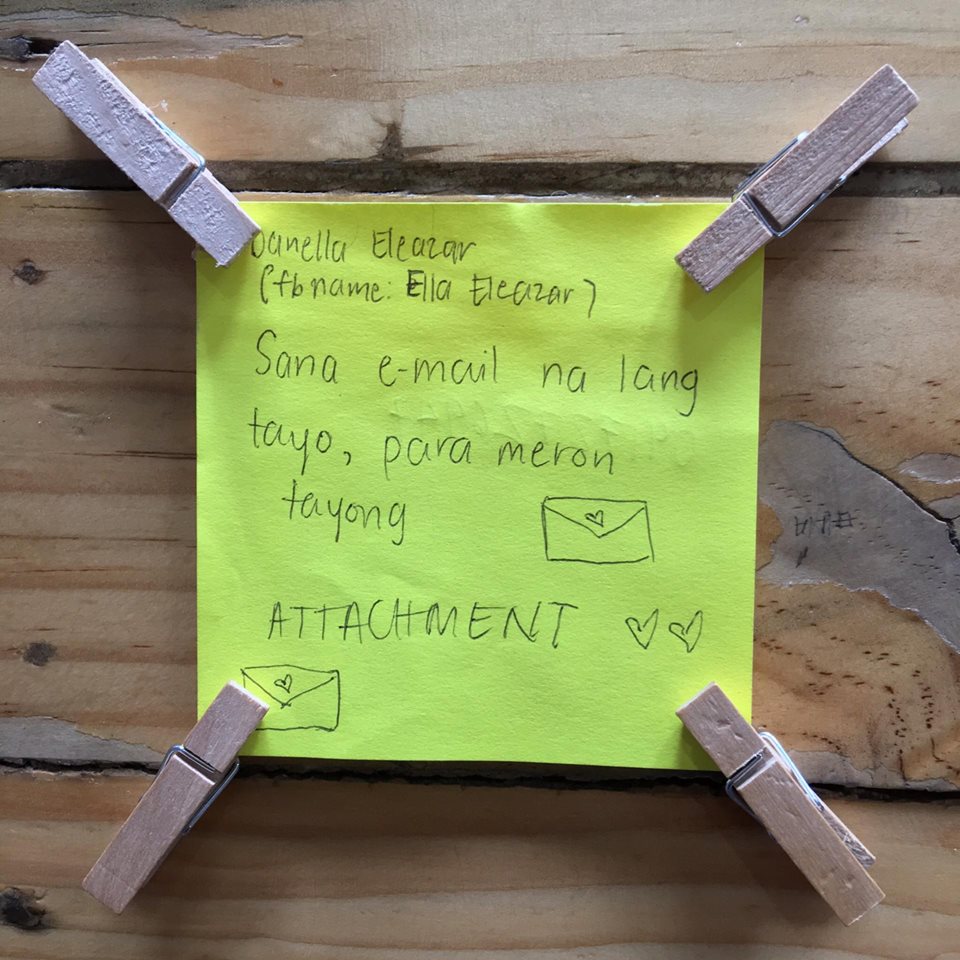 Danella Eleazar
(fb name: Ella Eleazar)
Sana e-mail na lang
tayo, para meron
tayong
ATTACHMENT